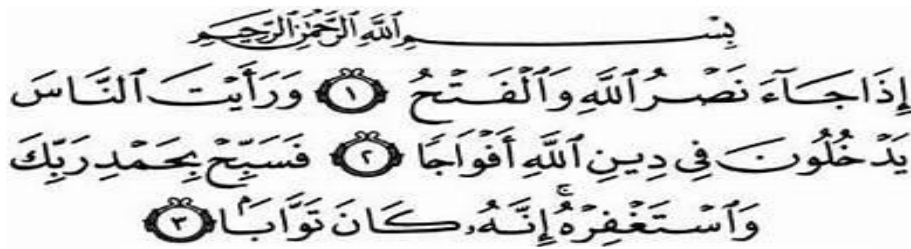 بِسْمِ ٱللَّهِ ٱلرَّحْمَٰنِ ٱلرَّحِيمِ
إِذَا جَآءَ نَصْرُ ٱللَّهِ وَٱلْفَتْحُ ١ وَرَأَيْتَ ٱلنَّاسَ
يَدْخُلُونَ فِي دِينِ ٱللَّهِ أَفْوَاجًا ٢ فَسَبِّحْ بِحَمْدِ رَبِّكَ
وَٱسْتَغْفِرْهُ ۚ إِنَّهُۥ كَانَ تَوَّابَۢا ٣